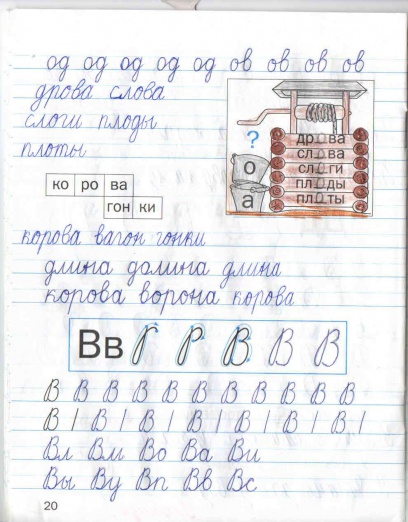 од од од од од ов ов ов ов
дрова слова
слоги плоды
плоты
?
о
а
др о ва
сл о ва
сл о ги
пл о ды
пл о ты
ко ро ва
гон ки
корова вагон гонки
длина долина длина
корова ворона корова
Вв В В В
В В В В В В В В В В
В | В | В | В | В | В | В |
Вл Вм Во Ва Ви
Вы Ву Вп Вв Вс
20